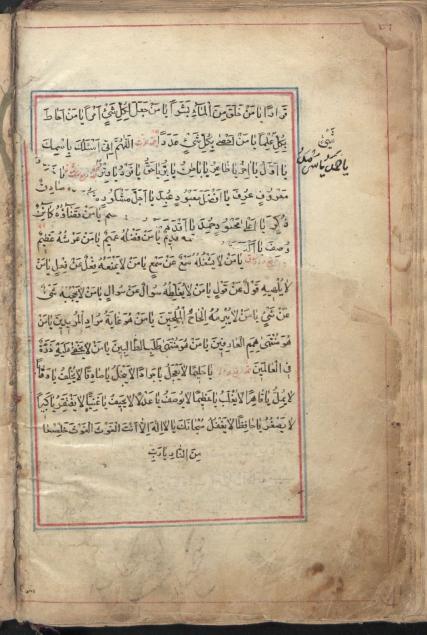 قَرَاراً يَا مَنْ خَلَقَ مِنَ الْمَاءِ بَشَراً يَا مَنْ جَعَلَ لِكُلِّ شَيْءٍ أمداً يَا مَنْ اَحَاطَ
بِكُلِّ عِلْماً يَا مَنْ اَحْصٰى بِكُلِّ شَيْءٍ عَدَداً اَللّٰهُمَّ اِنّى اَسْئَلُكَ بِاِسْمِكَ
يَا اَوَّلُ يَا اٰخِرُ يَا ظَاهِرُ يَا بَاطِنُ يَا بَرُّ يَا حَقُّ يَا فَرْدُ يَا وِتْرُ
مَعْرُوفٍ عُرِفَ يَا اَفْضَلَ مَعْبُودٍ عُبِدَ يَا اَجَلَّ مَشْكُورٍ
ذُكِرَ يَا حُمِدَ يَا اَقْدَمَ
قَدِيمٌ يَا مَنْ فَضْلُهُ عَمِيمٌ يَا مَنْ عَرْشُهُ عَظِيمٌ
يَا مَنْ لَا يَشْغَلُهُ سَمْعٌ عَنْ سَمْعٍ يَا مَنْ لَا يَمْنَعُهُ فِعْلٌ عَنْ فِعْلٍ يَا مَنْ
لَا يُلْهِيهِ قَوْلٌ عَنْ قَوْلٍ يَا مَنْ لَا يُغَلِّطُهُ سُوَالٌ عَنْ سُوَالٍ يَا مَنْ لَا يَحْجُبُهُ شَيْءٌ
عَنْ شَيْءٍ يَا مَنْ لَا يُبْرِمُهُ اِلْحَاحُ الْمُلِحِّينَ يَا مَنْ هُوَ غَايَةُ مُرَادِ الْمُرِيدِينَ يَا مَنْ
هُوَ مُنْتَهٰى هِمَمِ الْعَارِفِينَ يَا مَنْ هُوَ مُنْتَهٰى طَلَبِ الطَّالِبِينَ يَا مَنْ لَا يَخْفٰى عَلَيْهِ ذَرَّةٌ
فِى الْعَالَمِينَ يَا حَلِيماً لَا يَعْجَلُ يَا جَوَاداً لَا يَبْخَلُ يَا صَادِقاً لَا يُخْلِفُ يَا وَهَّاباً
لَا يَمَلُّ يَا قَاهِراً لَا يُغْلَبُ يَا عَظِيماً لَا يُوصَفُ يَا عَدْلاً لَا يَحِيفُ يَا غَنِيّاً لَا يَفْتَقِرُ يَا كَبِيراً
لَا يَصْغُرُ يَا حَافِظاً لَا يَغْفُلُ سُبْحَانَكَ يَا لَا اِلٰهَ اِلَّا اَنْتَ الْغَوْثَ الْغَوْثَ خَلِّصْنَا
مِنَ النَّارِ يَا رَبِّ